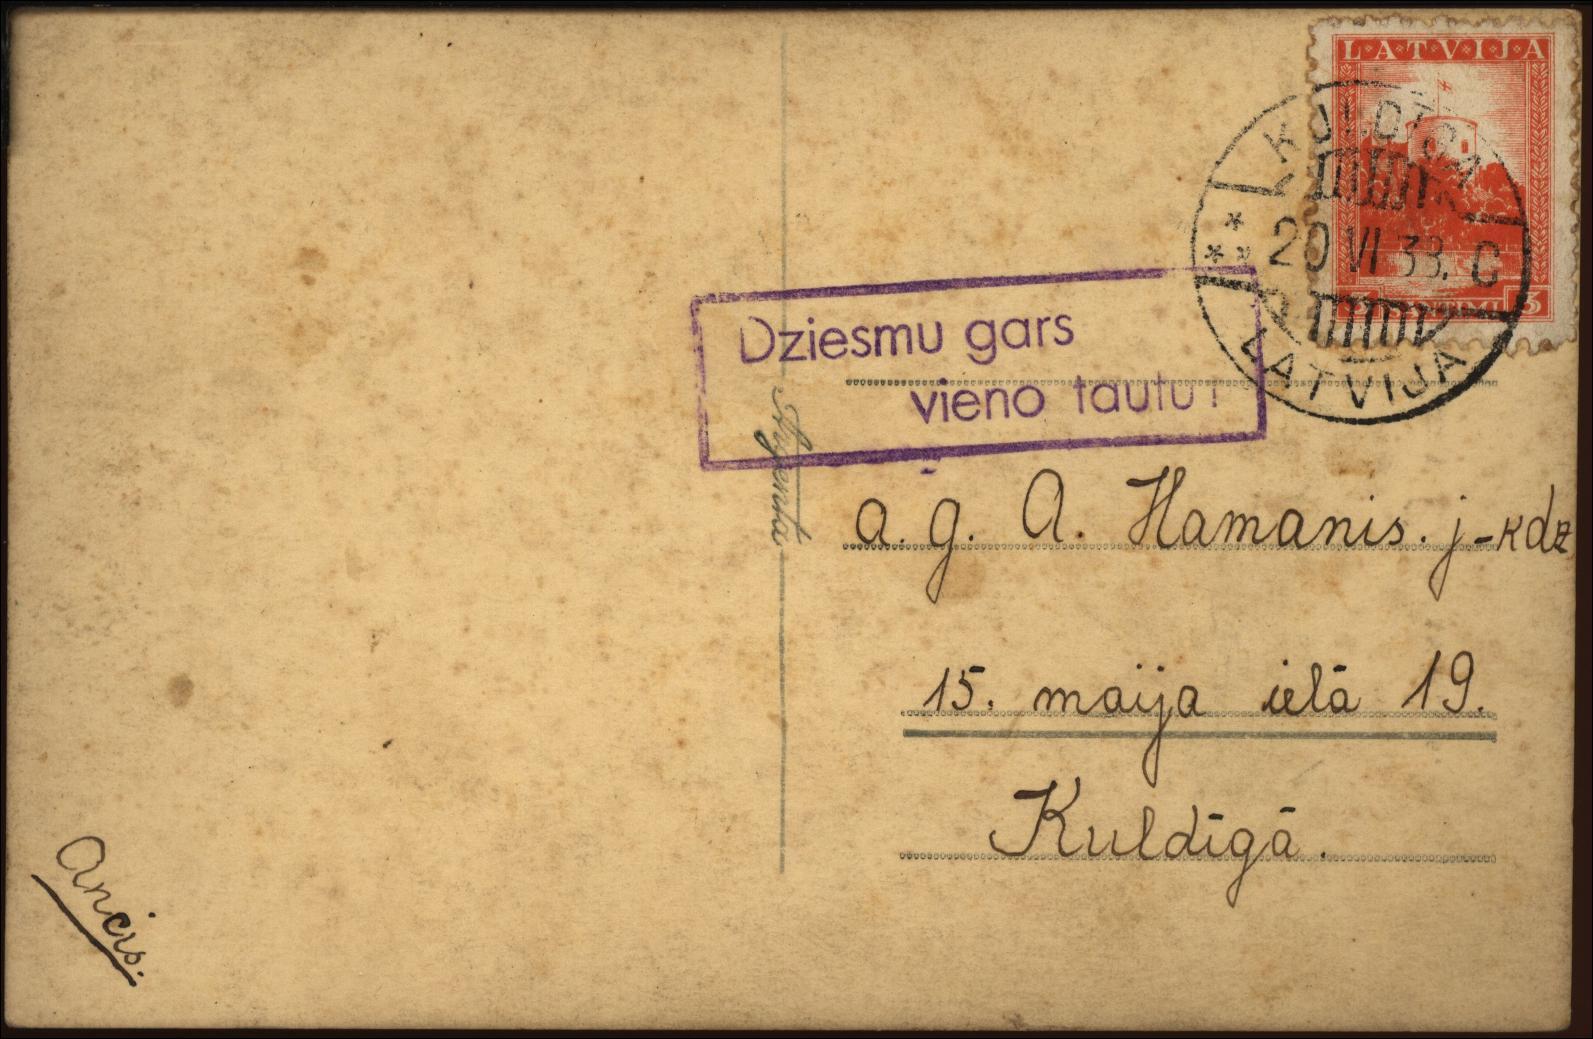 LATVIJA
KULDĪGA
20 VI 38. C
3 SANTIMI 3
LATVIJA
Dziesmu gars
vieno tautu!
a. g. A. Hamanis. j-kdz
15. maija ielā 19.
Kuldīgā.
Ancis.